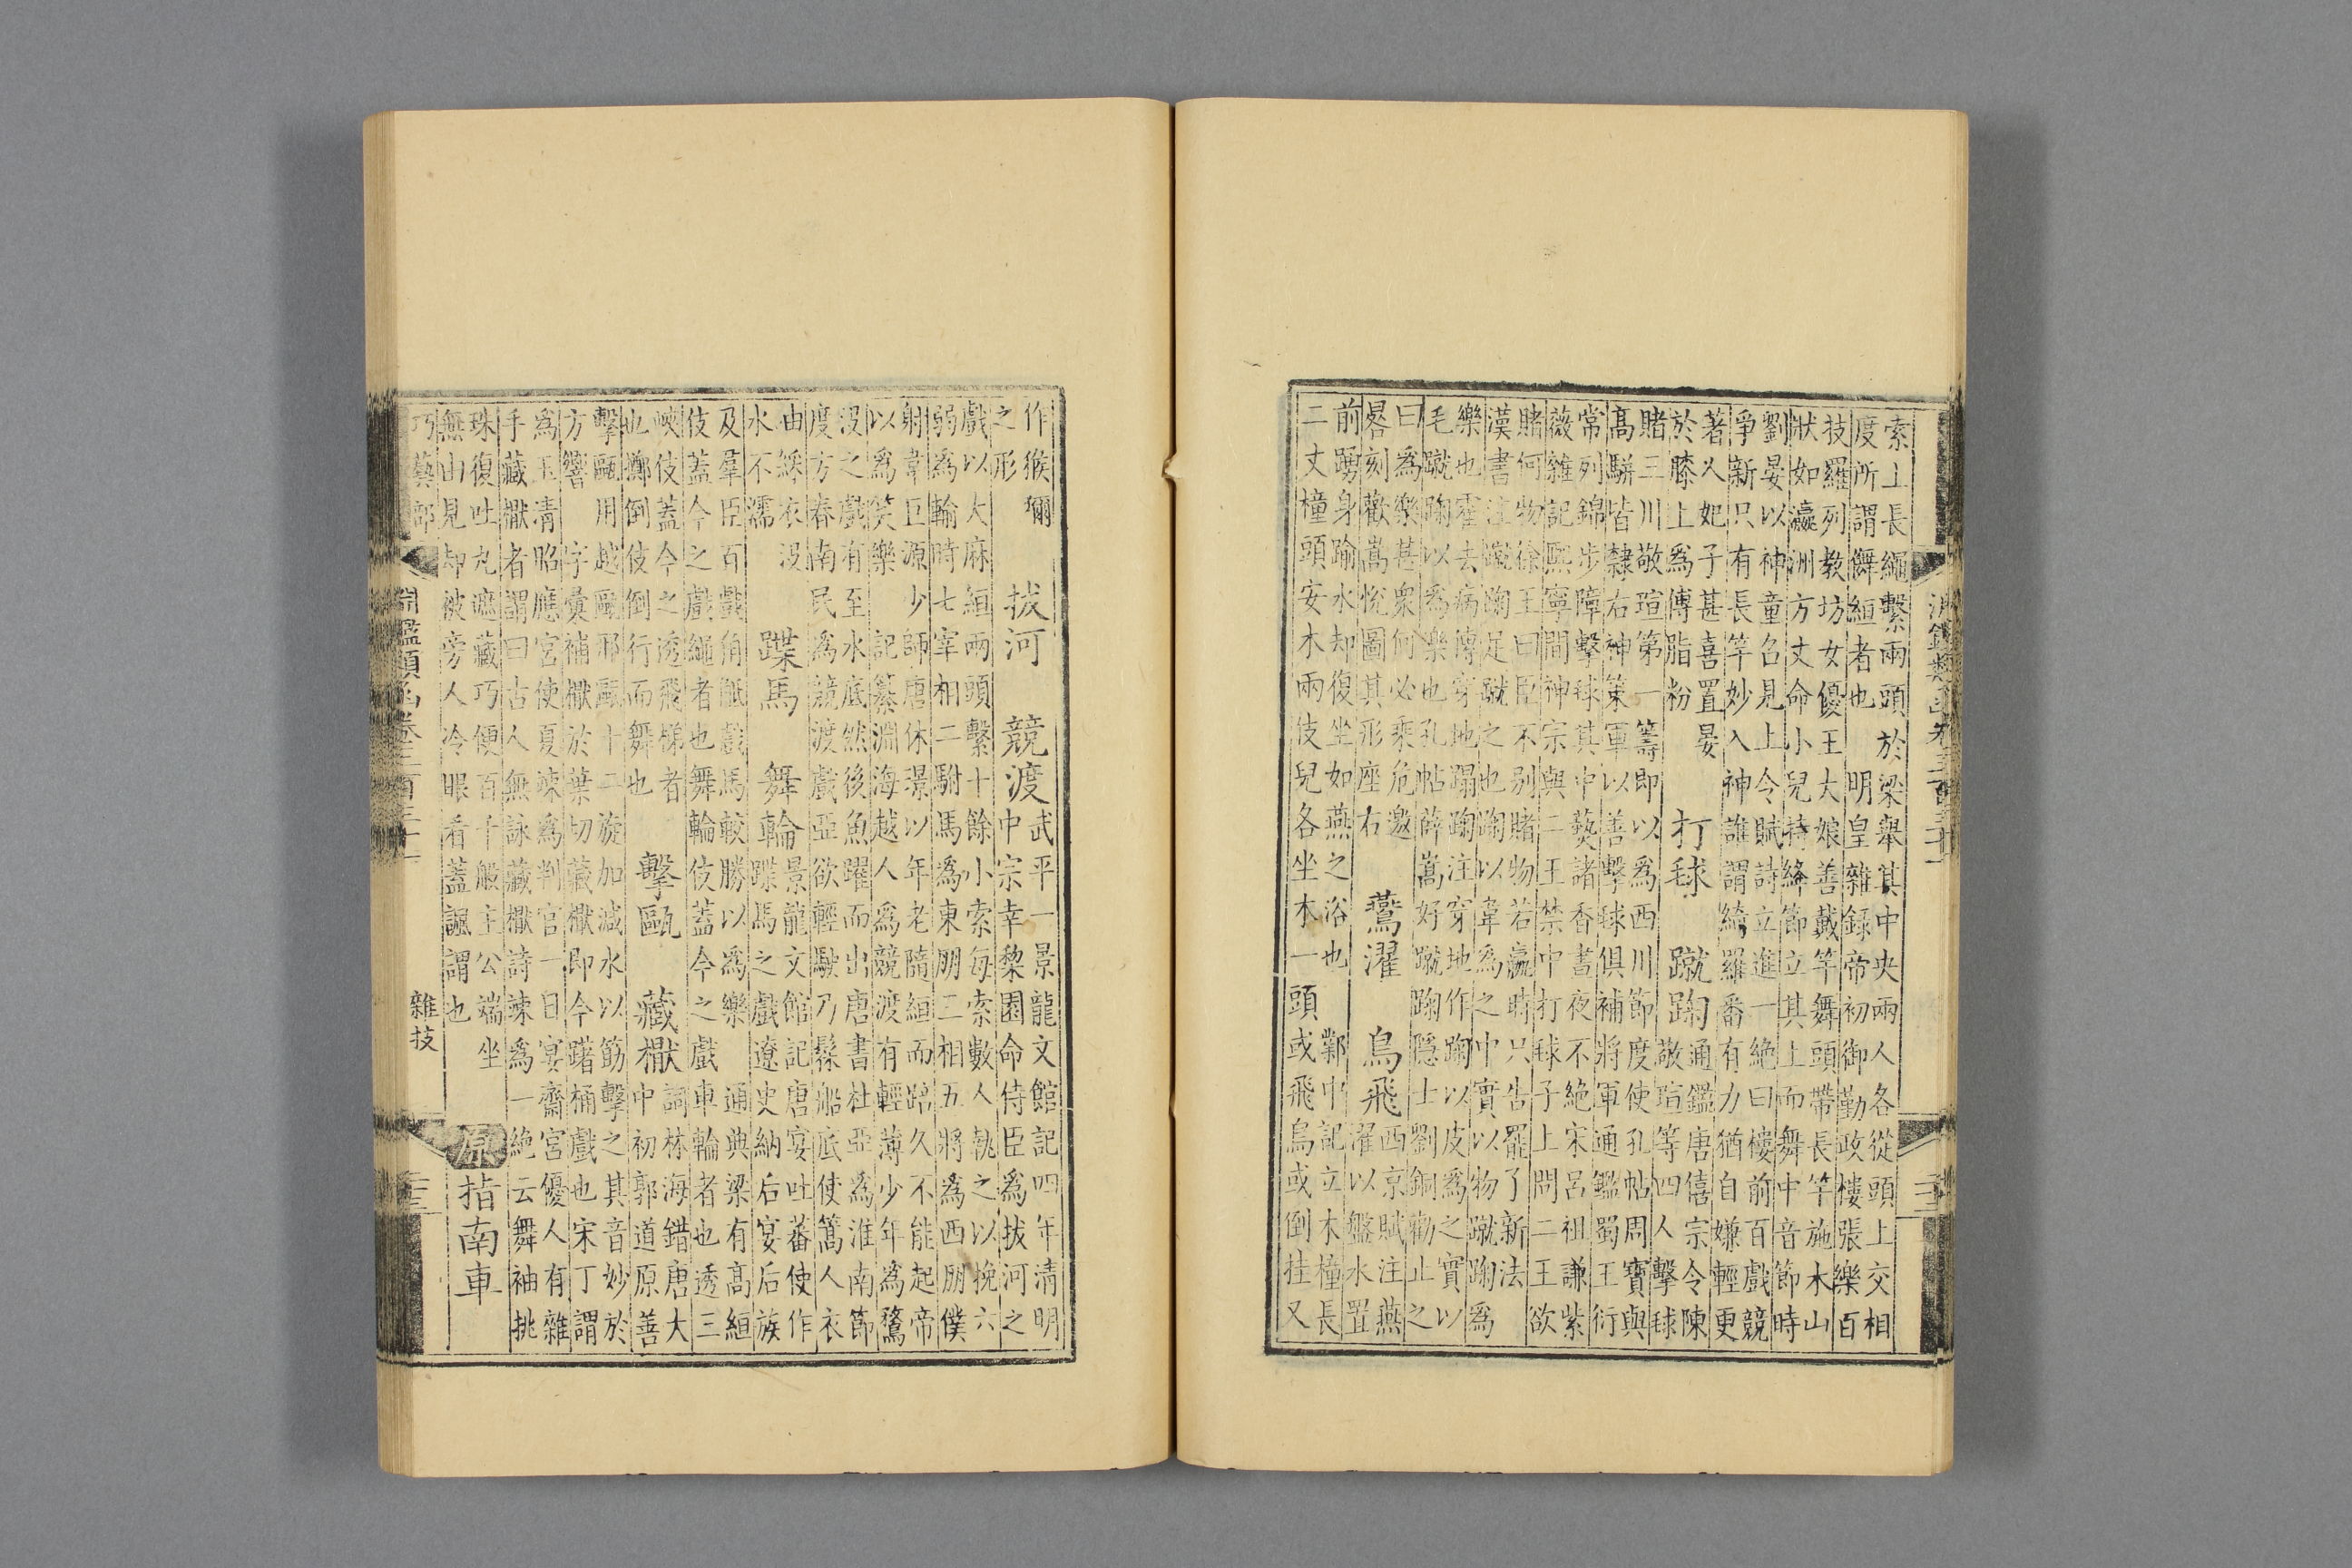 淵鑑類函卷三百三十
索上長繩繫兩頭於梁舉其中央兩人各從頭上交相
度所謂舞絙者也 明皇雜錄帝初御勤政樓張樂百
技羅列教坊女優王大娘善戴竿舞頭帶長竿施木山
狀如瀛洲方丈命小兒持絳節立其上而舞中音節時
劉晏以神童召見上令賦詩立進一絕曰樓前百戲競
爭新只有長竿妙入神誰謂綺羅番有力猶自嫌輕更
著人妃子甚喜置晏
於膝上為傅脂粉
打毬 蹴踘
通鑑唐僖宗令陳
敬瑄等四人擊毬
賭三川敬瑄第一籌即以為西川節度使孔帖周寶與
高駢皆隸右神策軍以善擊毬俱補將軍通鑑蜀王衍
常列錦步障擊毬其中爇諸香晝夜不絕宋呂祖謙紫
薇雜記熙寧間神宗與二王禁中打毬子上問二王欲
賭何物徐王曰臣不別賭物若贏時只告罷了新法
漢書注蹴踘足蹴之也踘以韋為之中實以物蹴踘為
樂也霍去病傳穿地蹋踘注穿地作踘以皮為之實以
毛蹴踘以為樂也孔帖薛嵩好蹴踘隱士劉銅勸止之
曰為樂甚衆何必乘危邀
晷刻歡嵩悅圖其形座右
鷰濯 鳥飛
西京賦注燕
濯以盤水置
前踴身踰水却復坐如燕之浴也 鄴中記立木橦長
二丈橦頭安木兩伎兒各坐木一頭或飛鳥或倒挂又
作猴獼
之形
拔河 競渡
武平一景龍文館記四年清明
中宗幸黎園命侍臣為拔河之
戲以大麻絙兩頭繫十餘小索每索數人執之以挽六
弱為輸時七宰相二駙馬為東朋二相五將為西朋僕
射韋巨源少師唐休璟以年老隨絙而踣久不能起帝
以為笑樂 記纂淵海越人為競渡有輕薄少年為鶩
沒之戲有至水底然後魚躍而出唐書杜亞為淮南節
度方春南民為競渡戲亞欲輕駛乃髹船底使篙人衣
油綵衣沒
水不濡
蹀馬 舞輪
景龍文館記唐宴吐蕃使作
蹀馬之戲遼史納后宴后族
及羣臣百戲角觝戲馬較勝以為樂 通典梁有高絙
伎蓋今之戲繩者也舞輪伎蓋今之戲車輪者也透三
峽伎蓋今之透飛梯者
也擲倒伎倒行而舞也
擊甌 藏橛
詞林海錯唐大
中初郭道原善
擊甌用越甌邢甌十二旋加減水以筯擊之其音妙於
方響 字彙補橛於葉切藏橛即今䠧桶戲也宋丁謂
為玉清昭應宮使夏竦為判官一日宴齋宮優人有雜
手藏橛者謂曰古人無詠藏橛詩竦為一絕云舞袖挑
珠復吐丸遮藏巧便百千般主公端坐
無由見却被旁人冷眼看蓋諷謂也
原 指南車
巧藝部 雜技
淵鑑類函卷三百三十